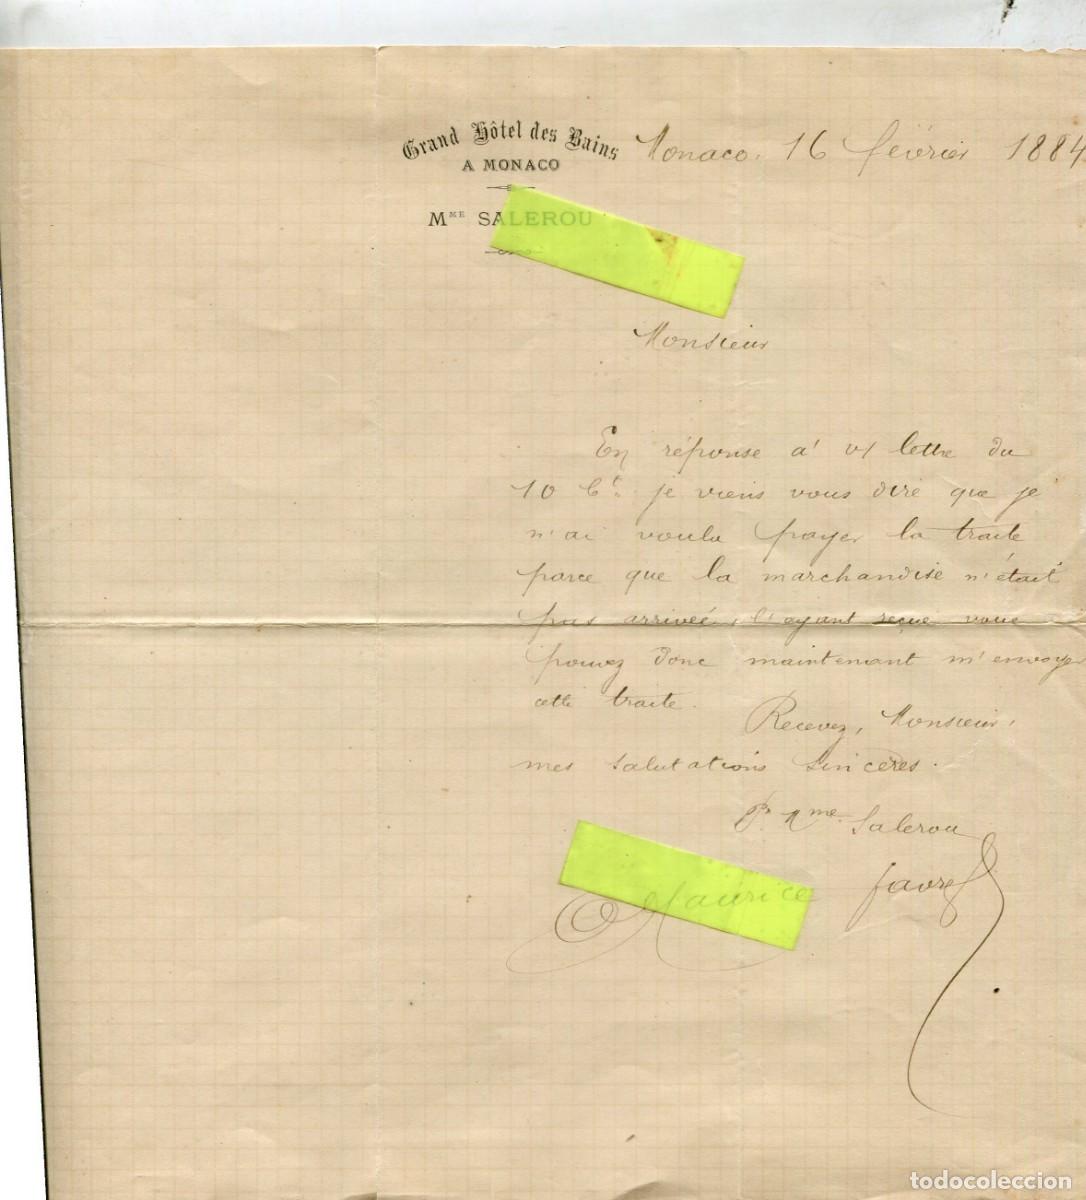 Grand Hôtel des Bains
A MONACO
Mme SALEROU
Monaco, 16 février 1884
Monsieur
En réponse à v/ lettre du
10 Ct. je viens vous dire que je
n'ai voulu payer la traite
parce que la marchandise n'était
pas arrivée, l'ayant reçue vous
pouvez donc maintenant m'envoyer
cette traite.
Recevez, Monsieur,
mes salutations sincères.
Pr. Mme. Salerou
Maurice Favre
todocoleccion